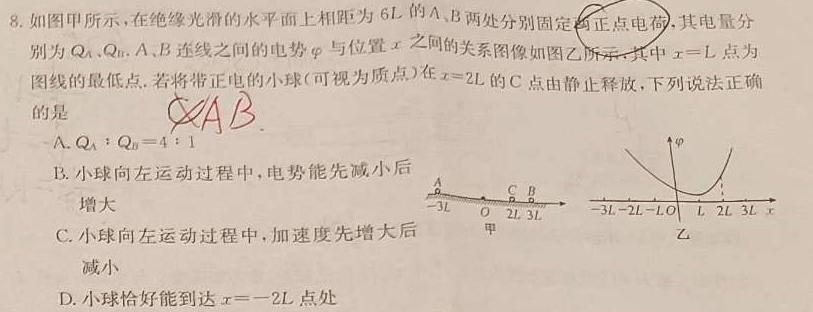 8. 如图甲所示,在绝缘光滑的水平面上相距为 6L 的 A、B 两处分别固定两正点电荷,其电量分
别为 Q_A、Q_B. A、B 连线之间的电势 φ 与位置 x 之间的关系图像如图乙所示,其中 x=L 点为
图线的最低点. 若将带正电的小球(可视为质点)在 x=2L 的 C 点由静止释放,下列说法正确
的是
AB.
A. Q_A : Q_B=4 : 1
B. 小球向左运动过程中,电势能先减小后
增大
C. 小球向左运动过程中,加速度先增大后
减小
D. 小球恰好能到达 x=-2L 点处
A C B
-3L O 2L 3L
甲
φ
-3L -2L -L O L 2L 3L x
乙